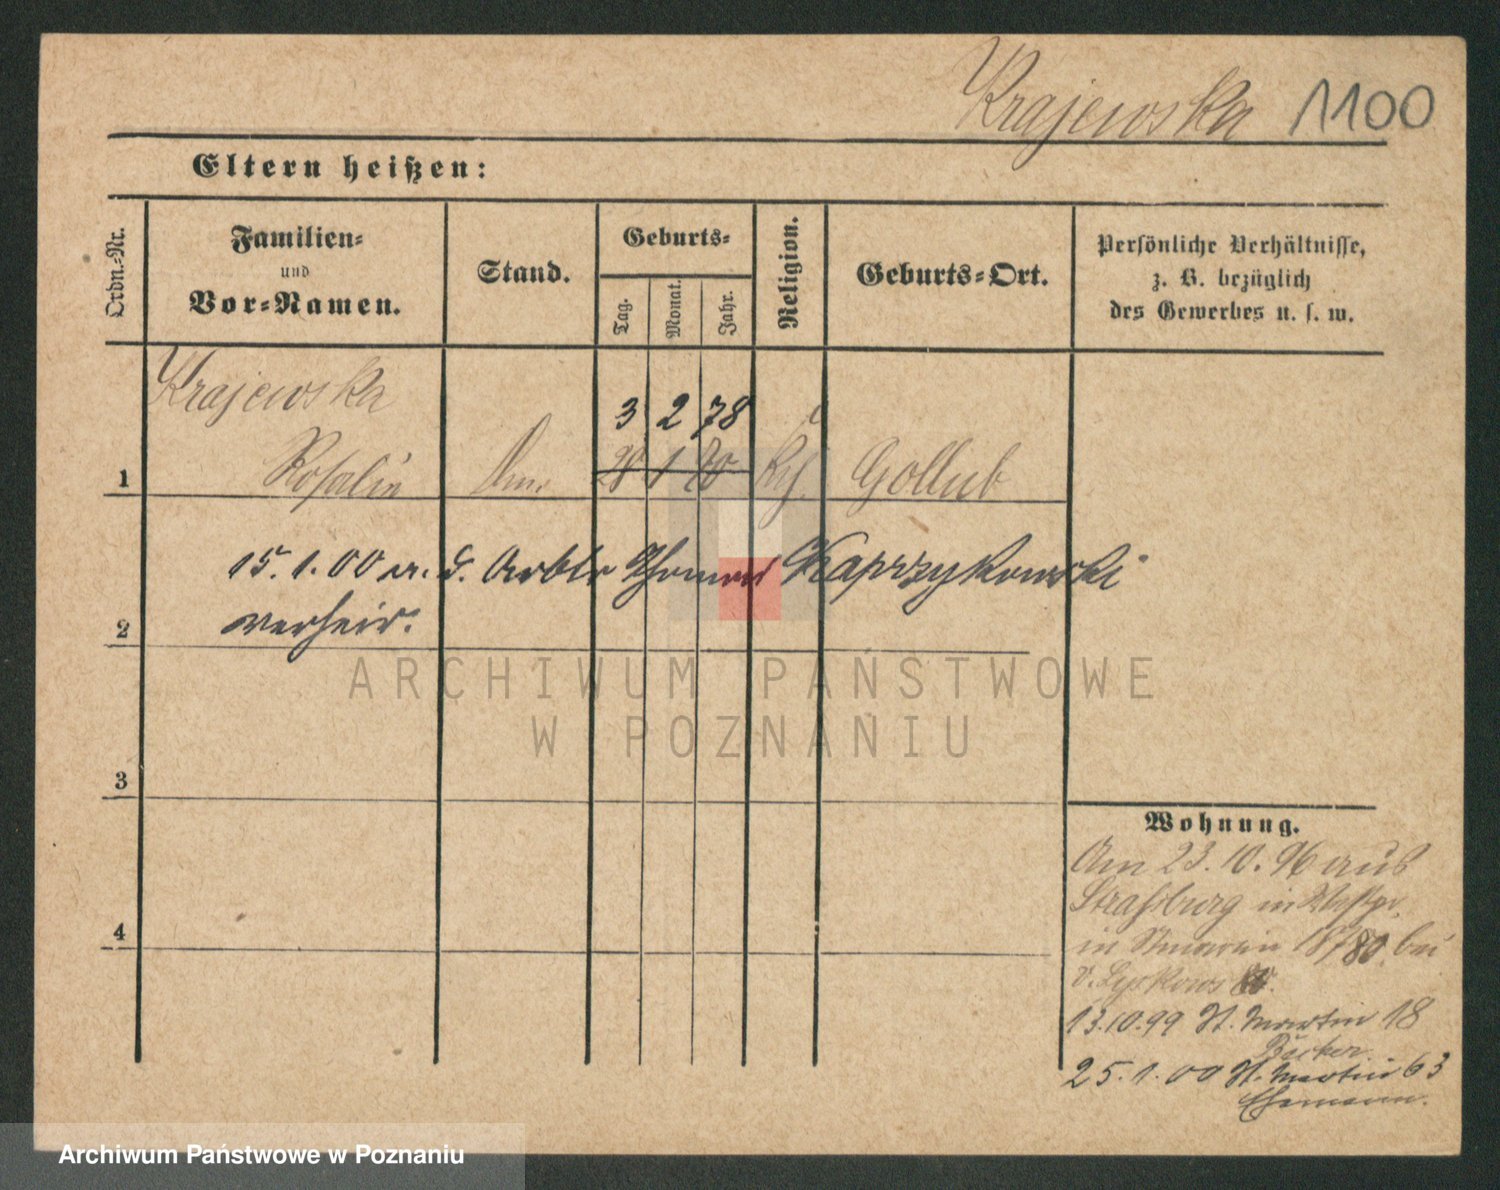 Krajewska 1100
Eltern heißen:
Ordn.-Nr.
Familien-
und
Vor-Namen.
Stand.
Geburts-
Tag.
Monat.
Jahr.
Religion.
Geburts-Ort.
Persönliche Verhältnisse,
z. B. bezüglich
des Gewerbes u. s. w.
Krajewska
3 2 78
1 Rosalie 28 1 80 Gollub
15.1.00 m. d. Arbtr Thomas Kaprzykowski
2 verheir.
3
4
Wohnung.
Am 23.10.96 aus
Straßburg in Westpr.
in 1878 bei
v. Lyskowski.
13.10.99 St. Martin 18
Bäcker
25.1.00 St. Martin 63
Ehemann.
ARCHIWUM PAŃSTWOWE
W POZNANIU
Archiwum Państwowe w Poznaniu